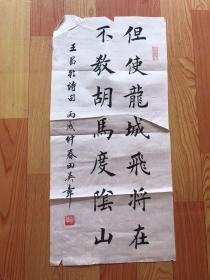 但使龍城飛將在
不教胡馬度陰山
王昌齡詩句 丙戌仲春田英章